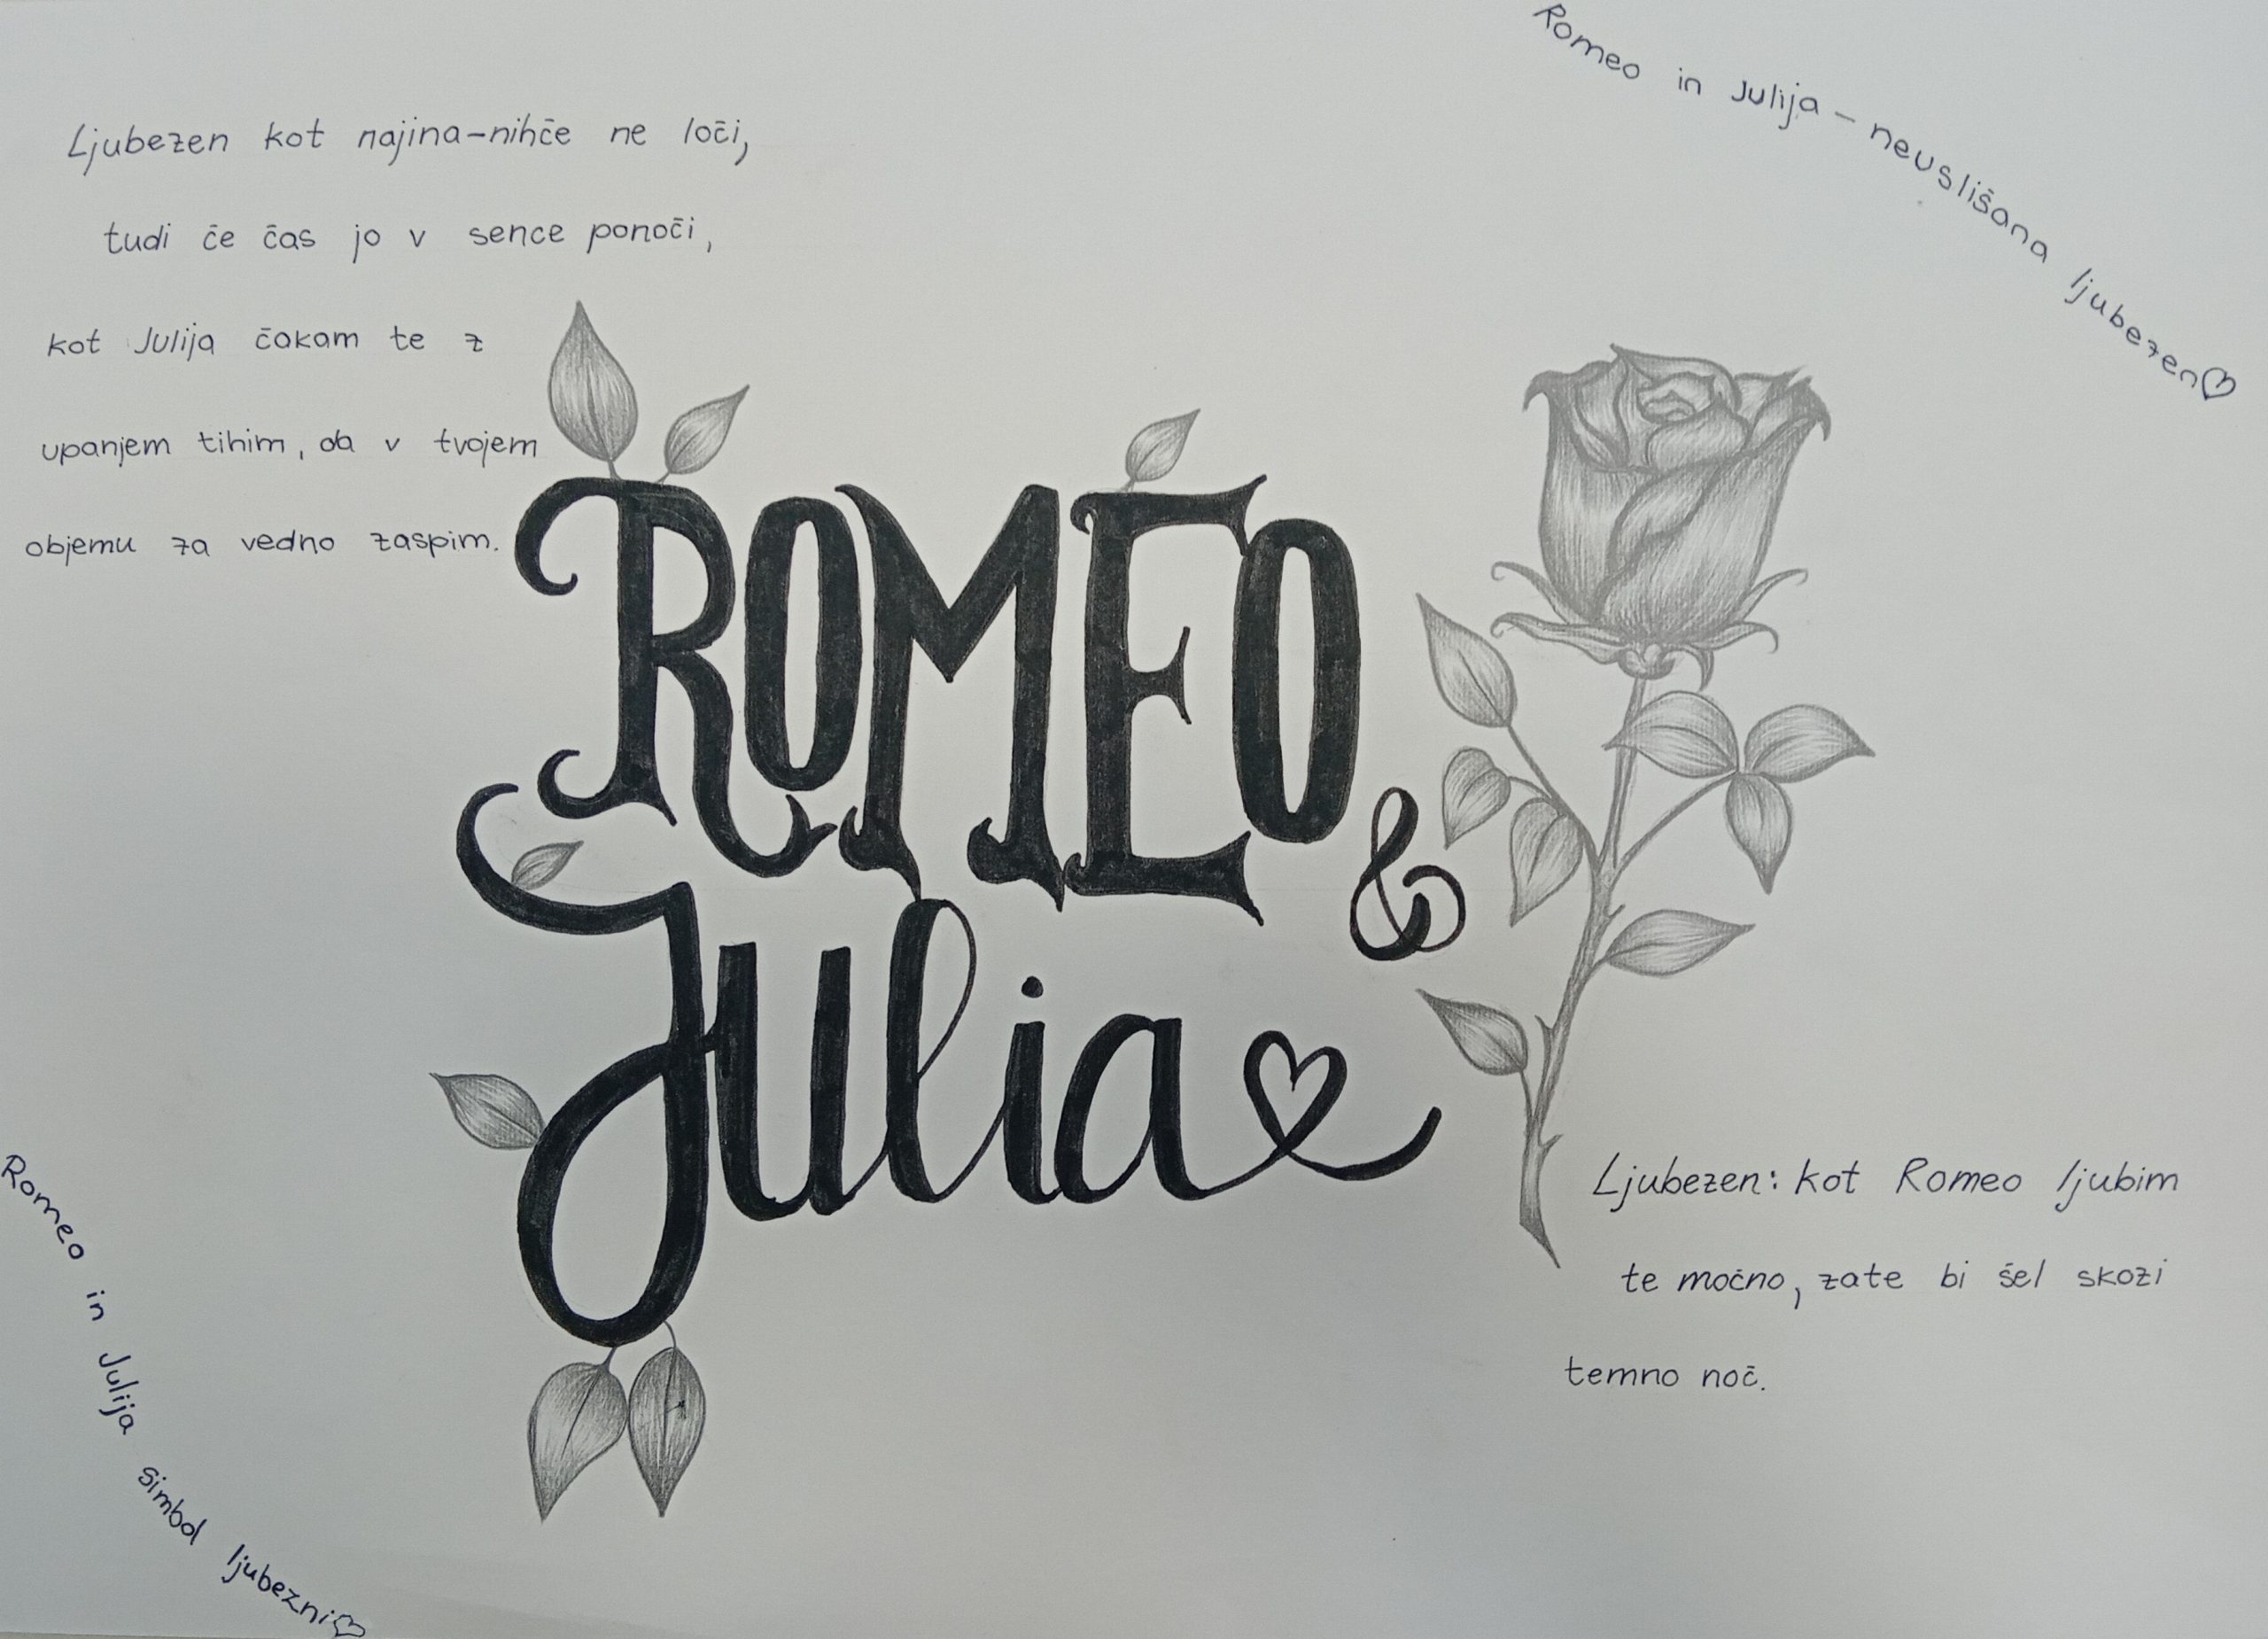 Romeo in Julija - neuslišana ljubezen♡
Ljubezen kot najina-nihče ne loči,
tudi če čas jo v sence ponoči,
kot Julija čakam te z
upanjem tihim, da v tvojem
objemu za vedno zaspim.
ROMEO
&
Julia
Ljubezen: kot Romeo ljubim
te močno, zate bi šel skozi
temno noč.
Romeo in Julija simbol ljubezni♡